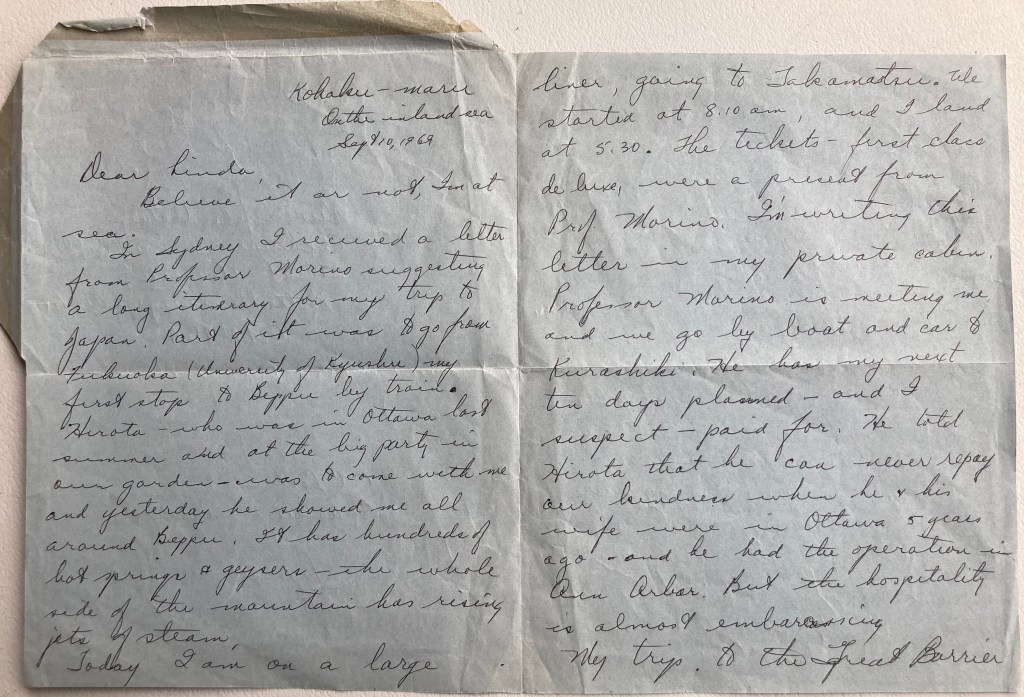 Kohaku-maru
On the inland sea
Sept 10, 1969
Dear Linda,
Believe it or not, I'm at
sea.
In Sydney I received a letter
from Professor Morino suggesting
a long itinerary for my trip to
Japan. Part of it was to go from
Fukuoka (University of Kyushu) my
first stop to Beppu by train.
Hirota - who was in Ottawa last
summer and at the big party in
our garden - was to come with me
and yesterday he showed me all
around Beppu. It has hundreds of
hot springs & geysers - the whole
side of the mountain has rising
jets of steam.
Today I am on a large
liner, going to Takamatsu. We
started at 8.10 am, and I land
at 5.30. The tickets - first class
de luxe, were a present from
Prof Morino. I'm writing this
letter in my private cabin.
Professor Morino is meeting me,
and we go by boat and car to
Kurashiki. He has my next
ten days planned - and I
suspect - paid for. He told
Hirota that he can never repay
our kindness when he & his
wife were in Ottawa 5 years
ago - and he had the operation in
Ann Arbor. But the hospitality
is almost embarassing
My trip to the Great Barrier